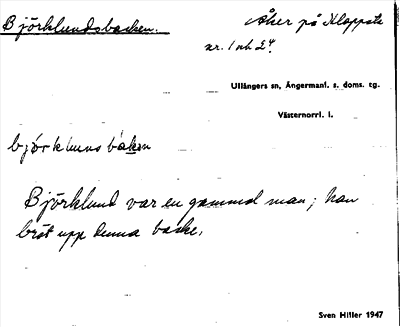 Björklundsbacken.
Åker på Kloppsta
nr. 1 och 24.
Ullångers sn, Ångermanl. s. doms. tg.
Västernorrl. l.
björkluns bakən
Björklund var en gammal man; han
bröt upp denna backe.
Sven Hiller 1947